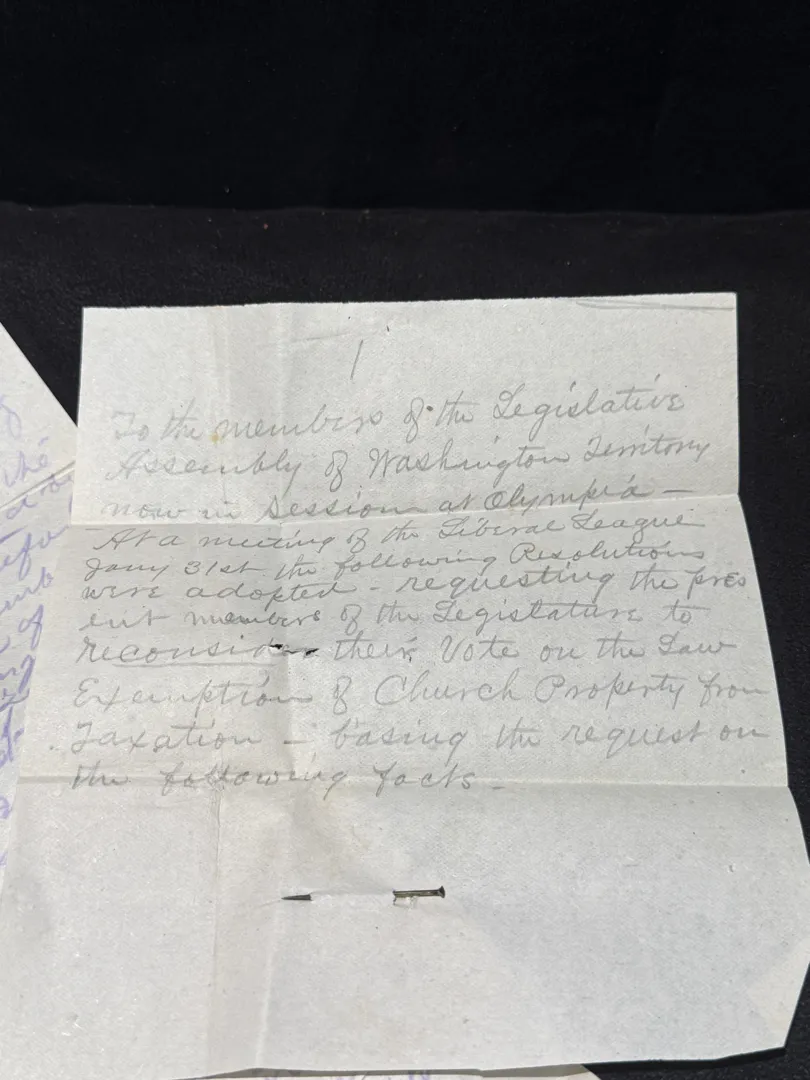 1
To the members of the Legislative
Assembly of Washington Territory
now in session at Olympia —
At a meeting of the Liberal League
Jany 31st the following Resolutions
were adopted - requesting the pres
ent members of the Legislature to
reconsider their Vote on the Law
Exemption of Church Property from
Taxation — basing the request on
the following facts -
the
of